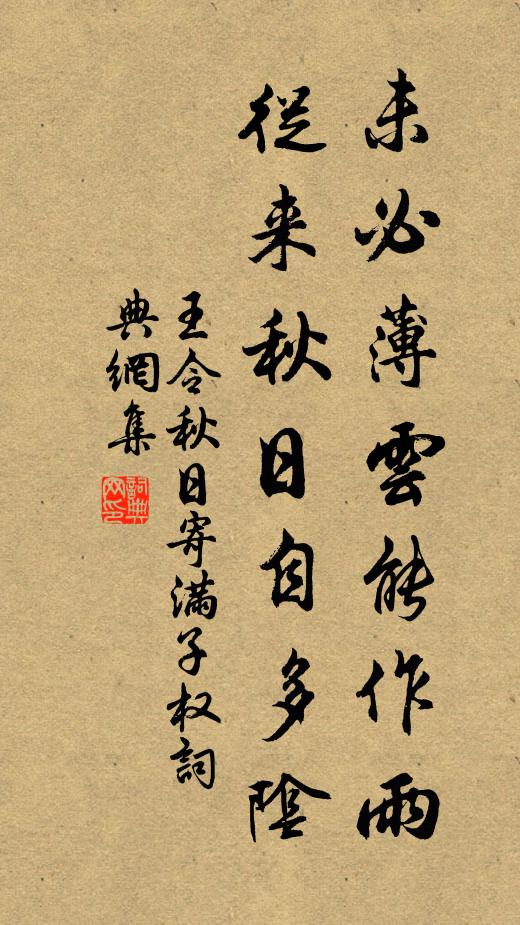 未必薄雲能作雨
從来秋日自多陰
王令秋日寄滿子权詞
典網集
詞典
网印